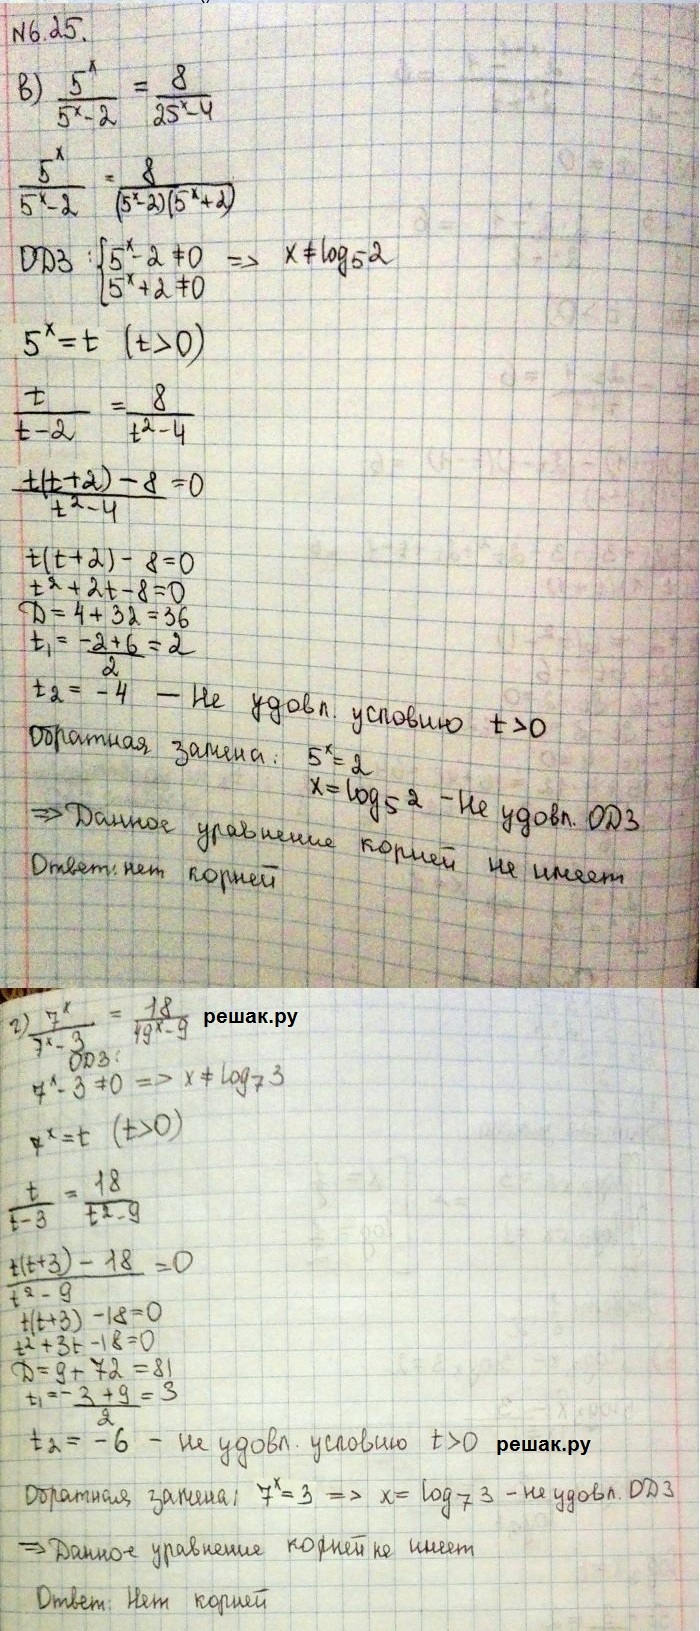 N6.25.
в) 5^x/(5^x-2) = 8/(25^x-4)
5^x/(5^x-2) = 8/((5^x-2)(5^x+2))
ОДЗ: { 5^x-2≠0 => x≠log₅2
5^x+2≠0
5^x=t (t>0)
t/(t-2) = 8/(t²-4)
(t(t+2)-8)/(t²-4) = 0
t(t+2)-8=0
t²+2t-8=0
D=4+32=36
t₁= (-2+6)/2 = 2
t₂= -4 — Не удовл. условию t>0
Обратная замена: 5^x=2
x=log₅2 - Не удовл. ОДЗ
=> Данное уравнение корней не имеет
Ответ: нет корней
г) 7^x/(7^x-3) = 18/(49^x-9) решак.ру
ОДЗ:
7^x-3≠0 => x≠log₇3
7^x=t (t>0)
t/(t-3) = 18/(t²-9)
(t(t+3)-18)/(t²-9) = 0
t(t+3)-18=0
t²+3t-18=0
D=9+72=81
t₁= (-3+9)/2 = 3
t₂= -6 - не удовл. условию t>0 решак.ру
Обратная замена: 7^x=3 => x=log₇3 - не удовл. ОДЗ
=> Данное уравнение корней не имеет
Ответ: Нет корней